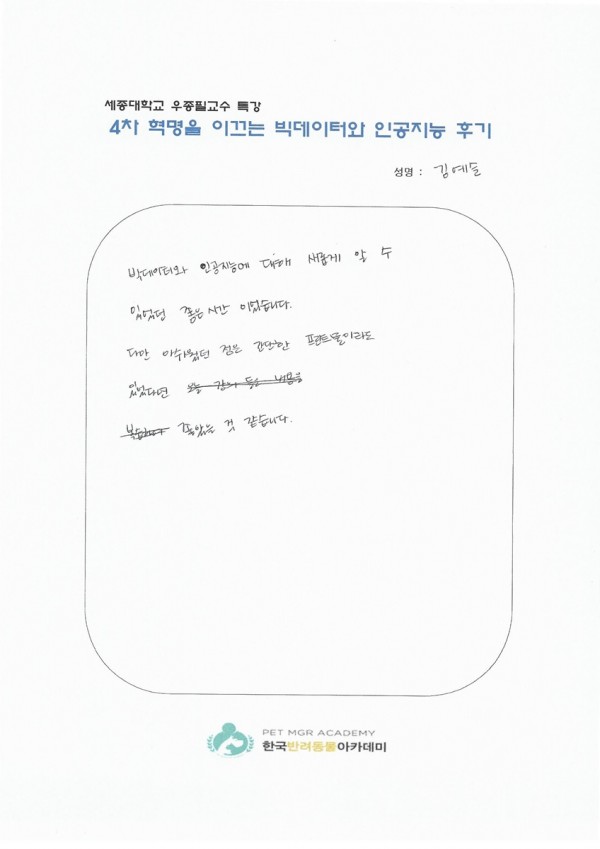 세종대학교 우종필교수 특강
4차 혁명을 이끄는 빅데이터와 인공지능 후기
성명 : 김예슬
빅데이터와 인공지능에 대해 새롭게 알 수
있었던 좋은 시간 이었습니다.
다만 아쉬웠던 점은 간단한 프린트물이라도
있었다면
좋았을 것 같습니다.
PET MGR ACADEMY
한국반려동물아카데미